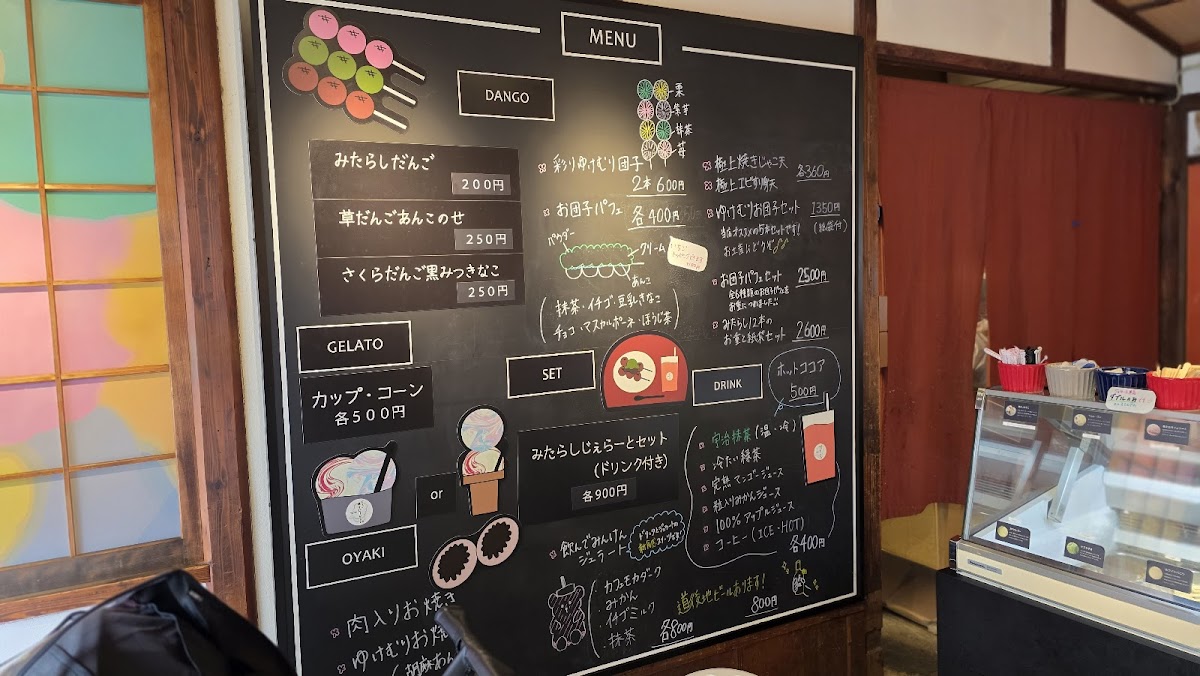 MENU
DANGO
みたらしだんご
200円
草だんごあんこのせ
250円
さくらだんご黒みつきなこ
250円
栗
紫芋
抹茶
苺
彩りゆけむり団子
2本 600円
お団子パフェ 各400円
パウダー
クリーム
あんこ
(抹茶・イチゴ・豆乳きなこ
チョコ・マスカルポーネ・ほうじ茶)
極上焼きじゃこ天
各360円
ゆけむりお団子セット 1350円
お団子パフェセット 2500円
みたらし12本の
2600円
GELATO
カップ・コーン
各500円
or
SET
みたらしじぇらーとセット
(ドリンク付き)
各900円
DRINK
ホットココア
500円
宇治抹茶(温・冷)
冷たい緑茶
完熟マンゴージュース
粒入りみかんジュース
100%アップルジュース
コーヒー(ICE・HOT)
各400円
飲んでみんけん
ジェラート
カフェモカダーク
・みかん
・イチゴミルク
・抹茶
各800円
道後地ビールあります!
800円
OYAKI
肉入りお焼き
ゆけむりお焼
(胡麻あん